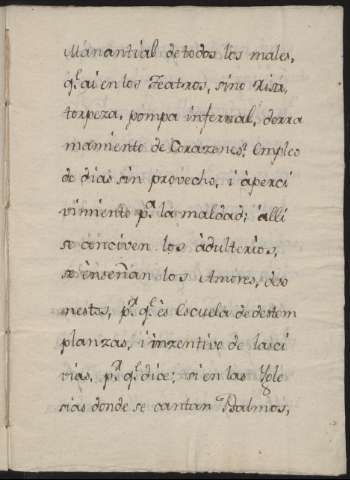 Manantial de todos los males,
q.e ai en los Teatros, sino Risa,
torpeza, pompa infernal, derra
mamiento de Corazones? Empleo
de dias sin provecho, i àperci
vimiento p.a la maldad; àlli
se conciven los àdulterios,
se ènseñan los Amores, deso
nestos, p.r q.e ès Escuela de destem
planzas, i inzentivo de lasci
vias, p.r q.e dice; si en las Ygle
sias donde se cantan Psalmos,